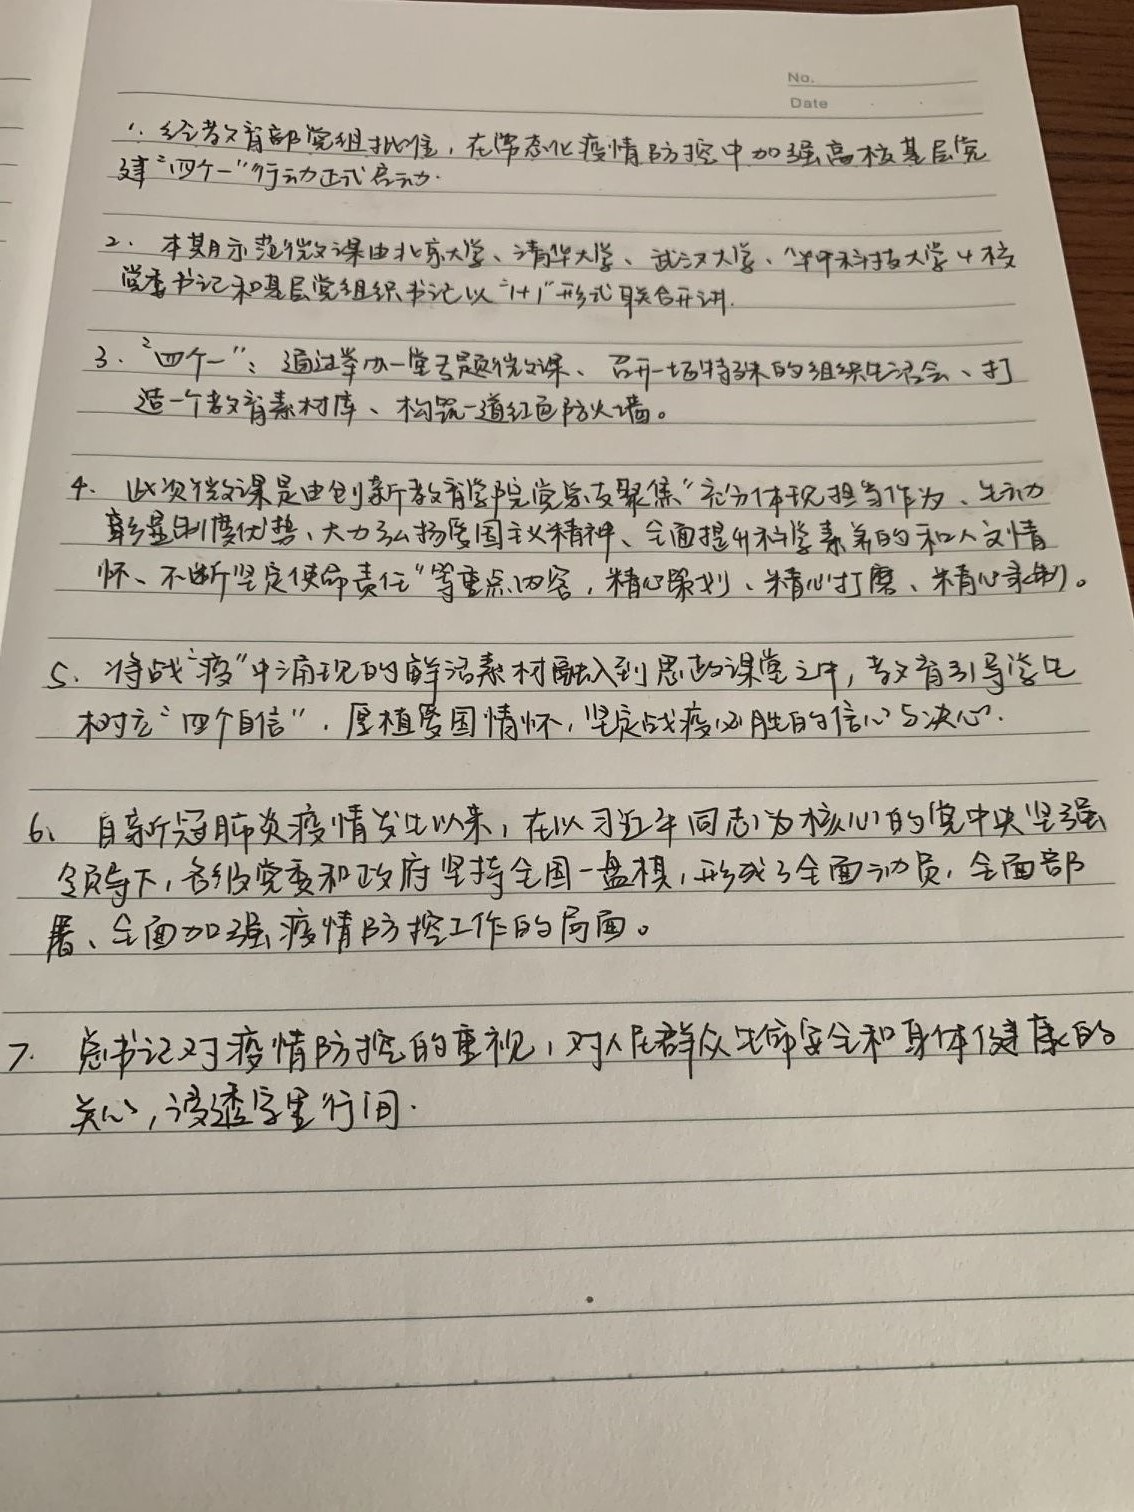 No.
Date
1. 经教育部党组批准，在常态化疫情防控中加强高校基层党
建“四个一”行动正式启动.
2. 本期示范微课由北京大学、清华大学、武汉大学、华中科技大学4校
党委书记和基层党组织书记以“1+1”形式联合开讲.
3. “四个一”：通过举办一堂专题微课、召开一场特殊的组织生活会、打
造一个教育素材库、构筑一道红色防火墙。
4. 此次微课是由创新教育学院党总支聚焦“充分体现担当作为、生动
彰显制度优势、大力弘扬爱国主义精神、全面提升科学素养的和人文情
怀、不断坚定使命责任”等重点内容，精心策划、精心打磨、精心录制。
5. 将战“疫”中涌现的鲜活素材融入到思政课堂之中，教育引导学生
树立“四个自信”，厚植爱国情怀，坚定战疫必胜的信心与决心.
6. 自新冠肺炎疫情发生以来，在以习近平同志为核心的党中央坚强
领导下，各级党委和政府坚持全国一盘棋，形成了全面动员，全面部
署、全面加强疫情防控工作的局面。
7. 总书记对疫情防控的重视，对人民群众生命安全和身体健康的
关心，浸透字里行间.